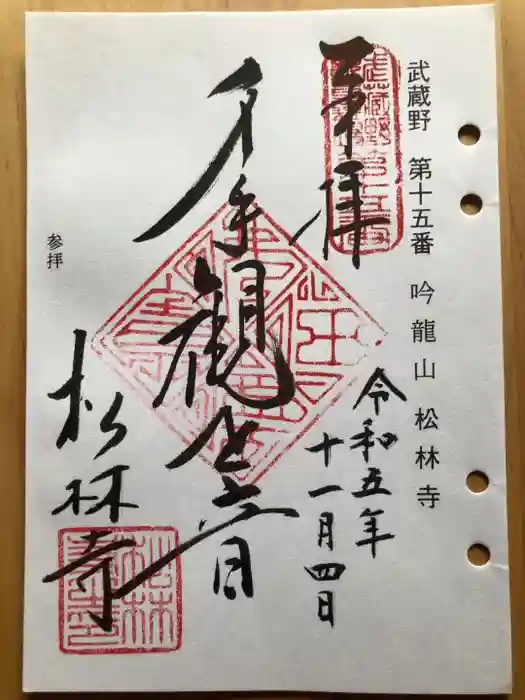 武蔵野 第十五番 吟龍山 松林寺
奉拝
令和五年
十一月四日
千手観世音
松林寺
参拝
松林